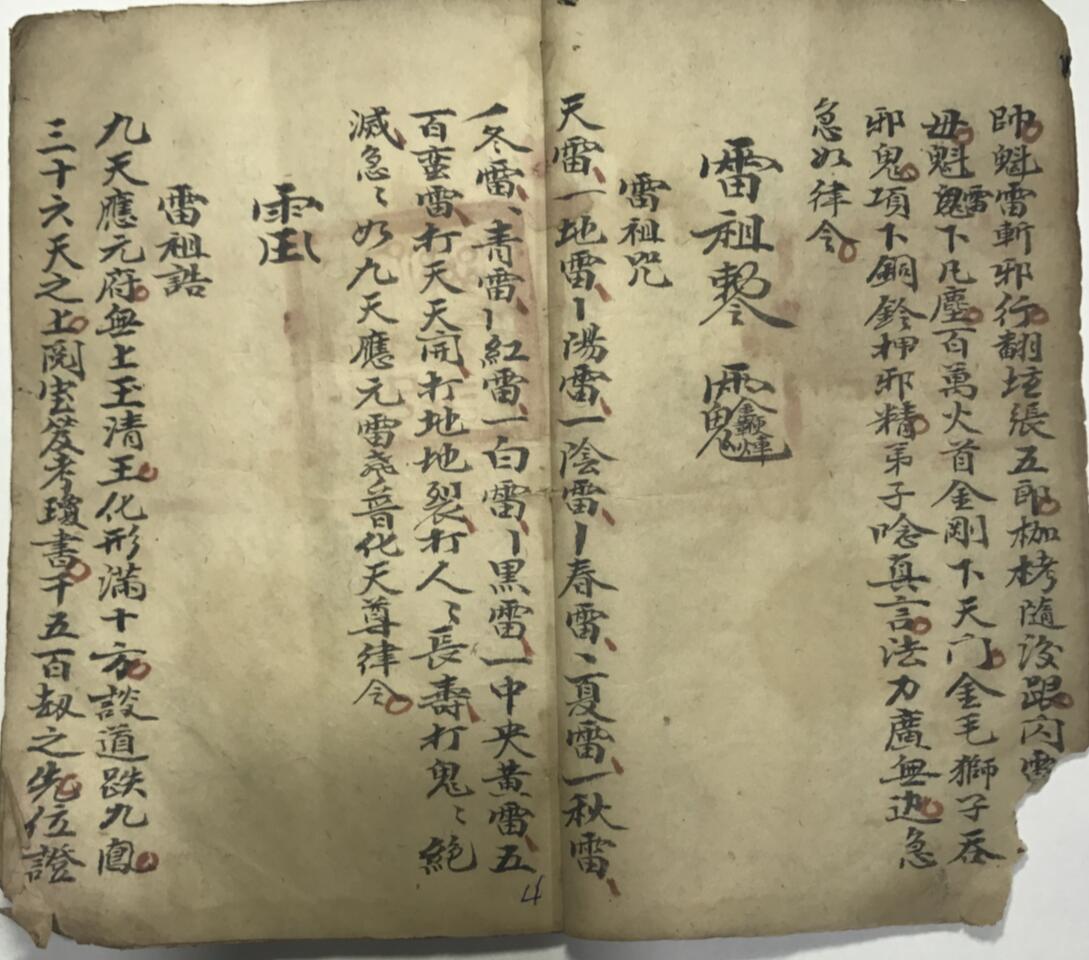 帥魁雷斬邪行翻坛張五郎枷栲隨後跟闪電
毋魁雷下凡塵百萬火首金剛下天门金毛獅子吞
邪鬼項下銅鈴押邪精弟子唸真言法力廣無边急
急如律令
雷祖敕令
雷祖咒
天雷一地雷一陽雷一陰雷一春雷〻夏雷一秋雷
一冬雷、青雷一紅雷一白雷一黒雷一中央黄雷五
百蛮雷打天天開打地地裂打人〻長壽打鬼〻絕
滅急〻如九天應元雷声普化天尊律令
雷祖誥
九天應元府無上王清王化形滿十方談道趺九鳳
三十六天之上閱宝笈考瓊書千五百劫之先位證
4